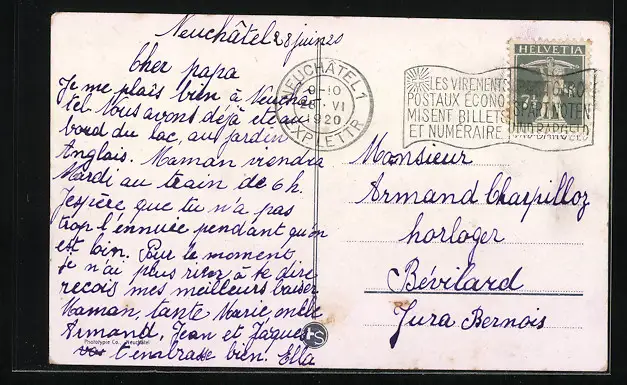 Neuchâtel 28 juin 20
Cher papa
Je me plais bien à Neucha-
tel. Nous avons déjà été au
bord du lac, au jardin
Anglais. Maman viendra
Mardi au train de 6 h.
J'espère que tu n'a pas
trop l'ennuie pendant qu'on
est loin. Pour le moment
je n'ai plus rien à te dire
recois mes meilleurs baiser
Maman, tante Marie, oncle
Armand, Jean et Jaques
t'enbrasse bien. Ella
Phototypie Co., Neuchâtel
NEUCHÂTEL 1
9-10
28 VI
1920
EXP. LETTR.
LES VIREMENTS
POSTAUX ÉCONO
MISENT BILLETS
ET NUMÉRAIRE
HELVETIA
7½
SPART NOTEN
UND BARGELD
Monsieur
Armand Charpilloz
horloger
Bévilard
Jura Bernois